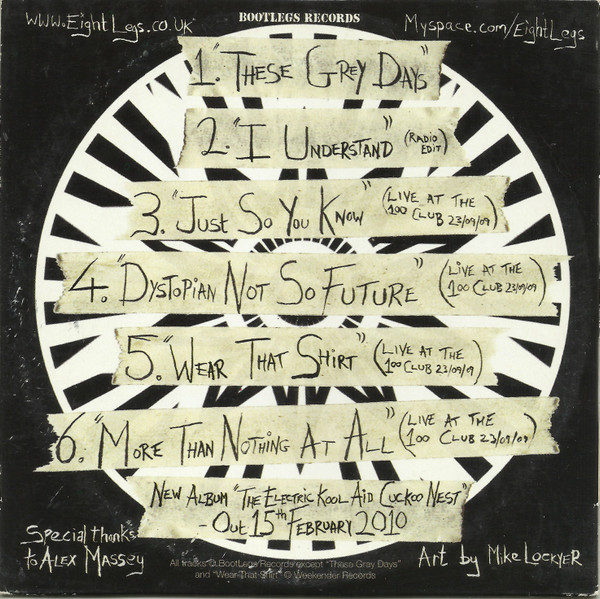 www.EightLegs.co.uk
BOOTLEGS RECORDS
Myspace.com/EightLegs
1. "These Grey Days"
2. "I Understand" (Radio Edit)
3. "Just So You Know" (Live at the 100 Club 23/09/09)
4. "Dystopian Not So Future" (Live at the 100 Club 23/09/09)
5. "Wear That Shirt" (Live at the 100 Club 23/09/09)
6. "More Than Nothing At All" (Live at the 100 Club 23/09/09)
New Album "The Electric Kool Aid Cuckoo Nest"
- Out 15th February 2010
Special thanks
to Alex Massey
Art by Mike Lockyer
All tracks © BootLegs Records except "These Gray Days"
and "Wear That Shirt" © Weekender Records